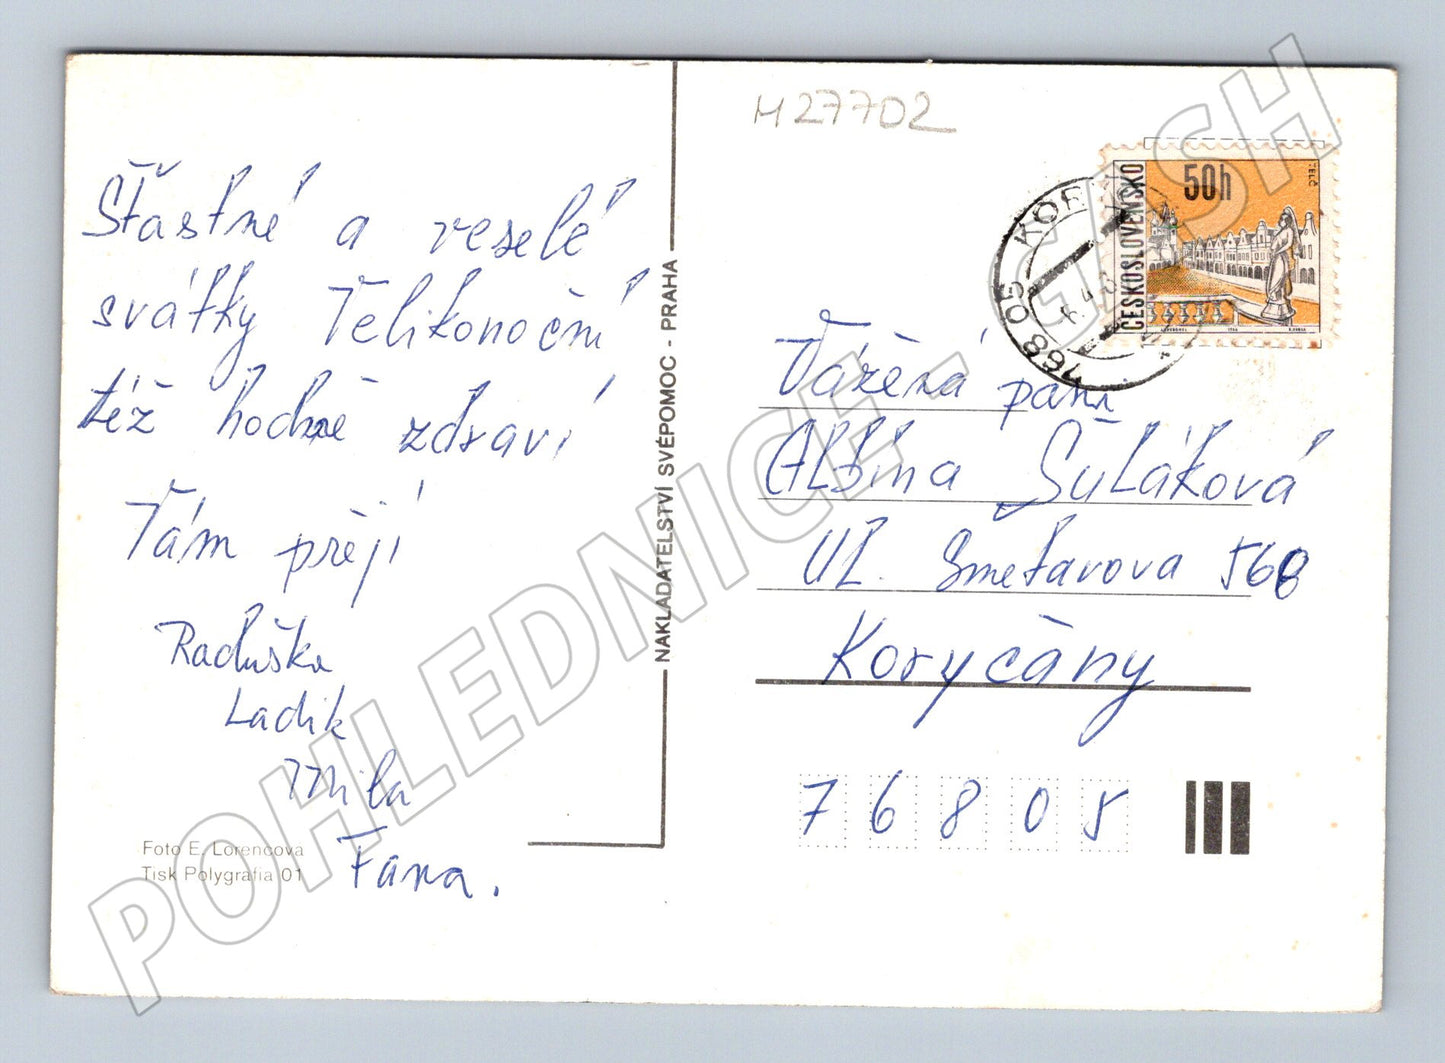 H 27702
Šťastné a veselé
svátky Velikonoční
též hodně zdraví
Vám přejí
Raduška
Ladik
Mila
Jana.
Foto E. Lorencova
Tisk Polygrafia 01
NAKLADATELSTVÍ SVÉPOMOC - PRAHA
ČESKOSLOVENSKO
50h
TELČ
768 05 KORYČANY
Vážená paní
Albína Šuláková
Ul. Smetavova 568
Koryčany
76805
POHLEDNICE - CASH